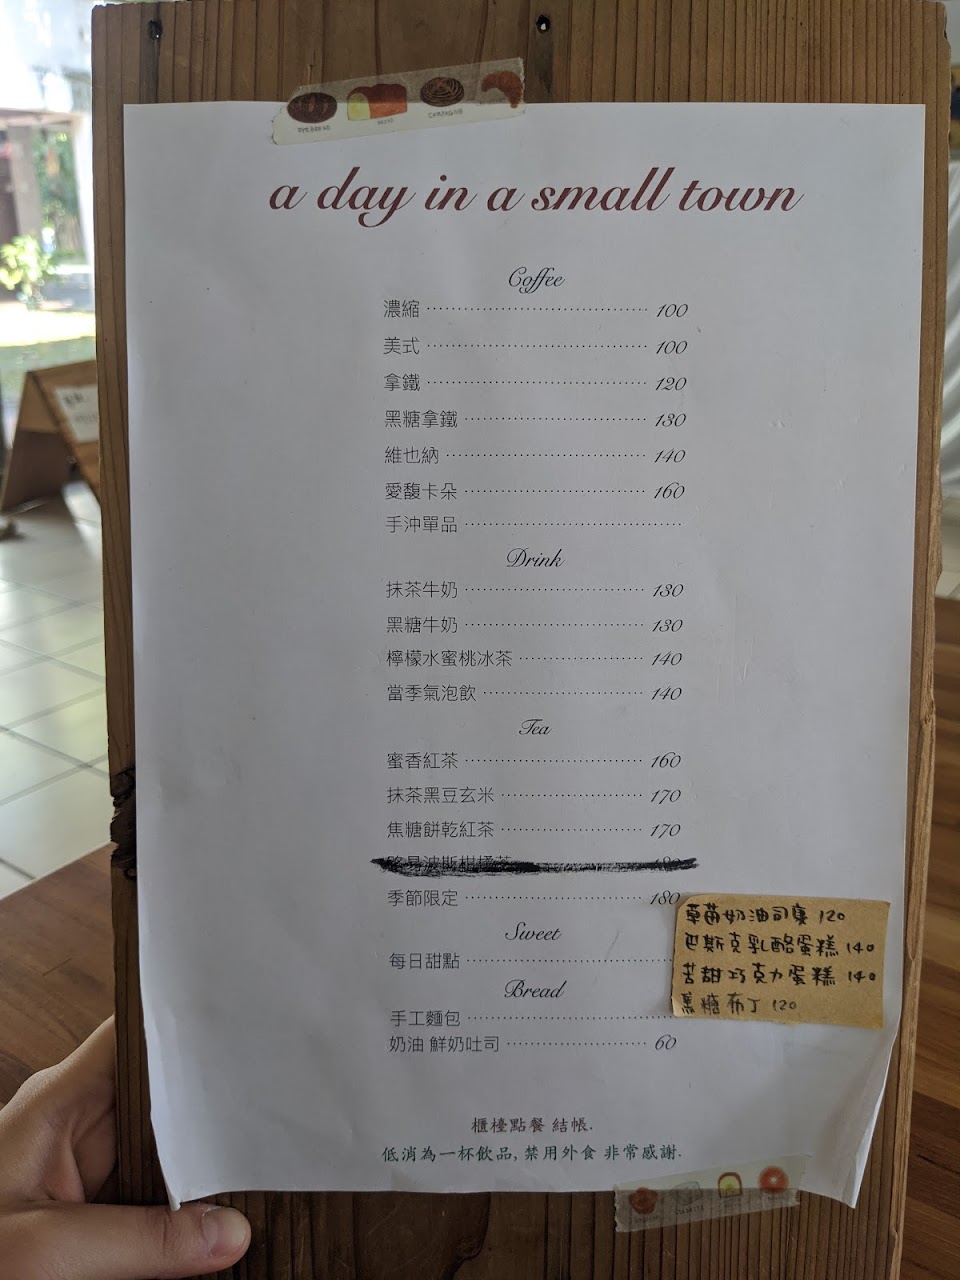 a day in a small town
Coffee
濃縮 100
美式 100
拿鐵 120
黑糖拿鐵 130
維也納 140
愛馥卡朵 160
手沖單品
Drink
抹茶牛奶 130
黑糖牛奶 130
檸檬水蜜桃冰茶 140
當季氣泡飲 140
Tea
蜜香紅茶 160
抹茶黑豆玄米 170
焦糖餅乾紅茶 170
季節限定 180
Sweet
每日甜點
草莓奶油司康 120
巴斯克乳酪蛋糕 140
苦甜巧克力蛋糕 140
黑糖布丁 120
Bread
手工麵包
奶油 鮮奶吐司 60
櫃檯點餐 結帳.
低消為一杯飲品, 禁用外食 非常感謝.